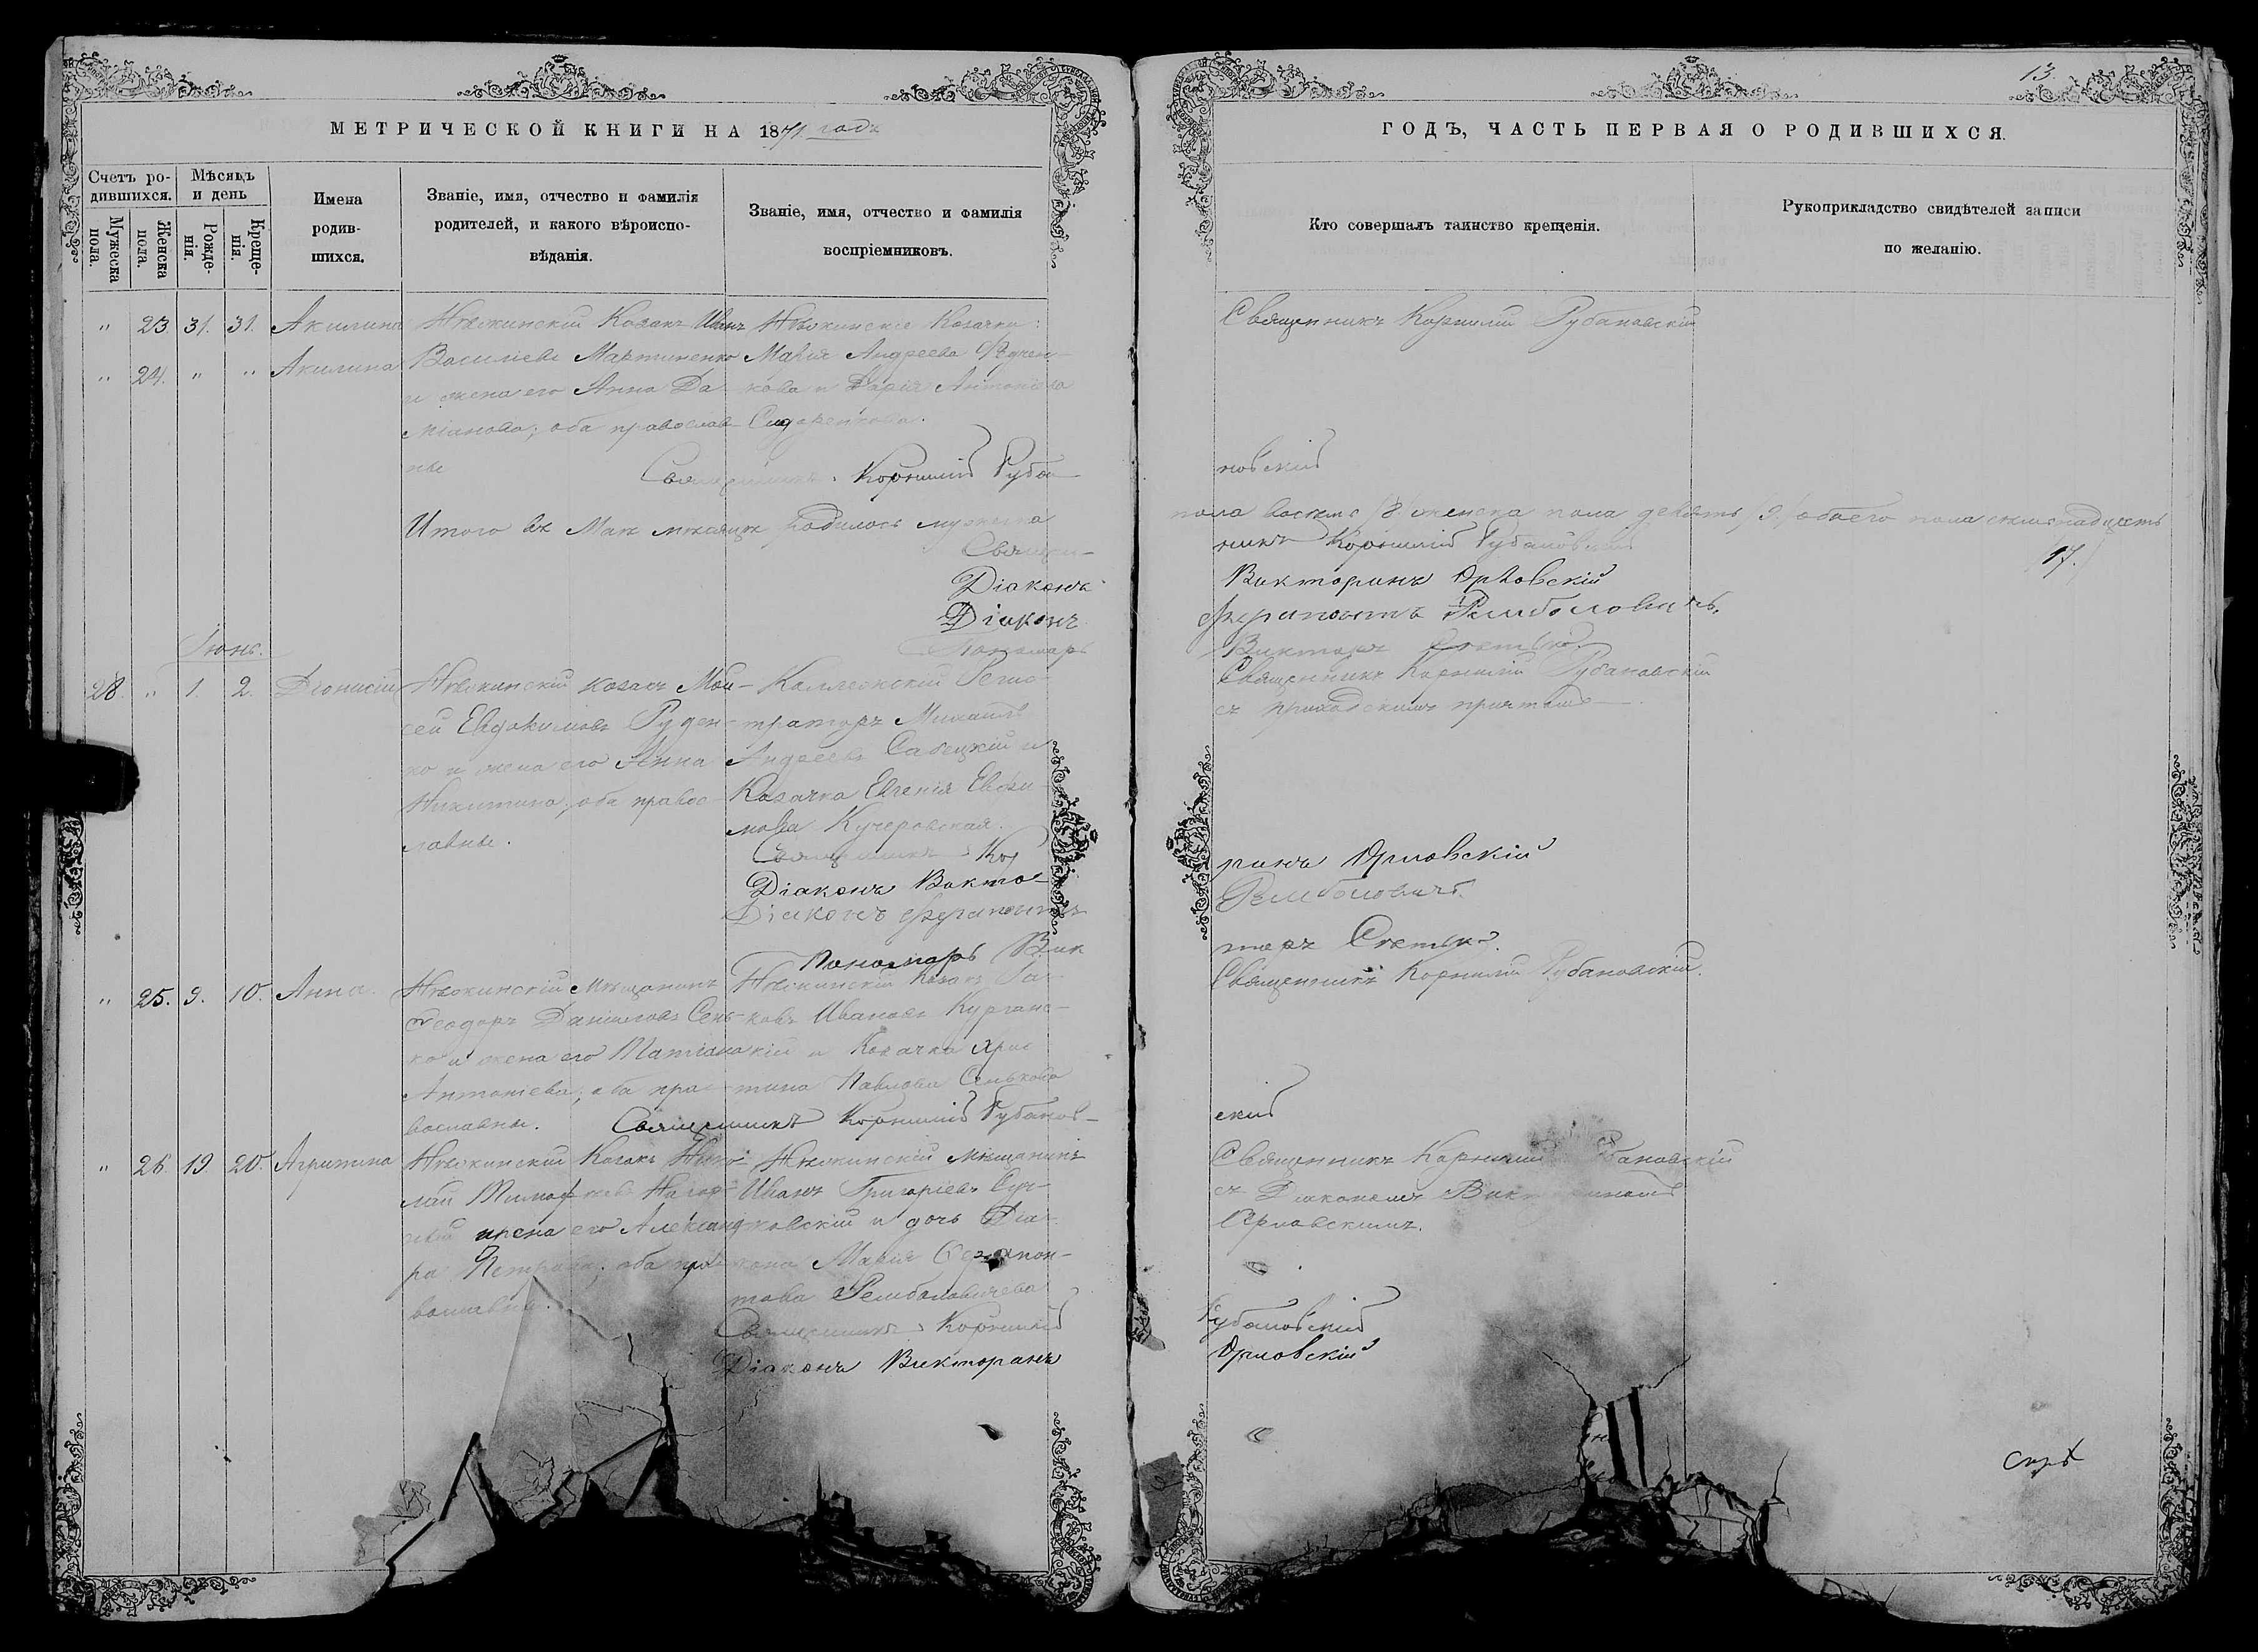 13.
МЕТРИЧЕСКОЙ КНИГИ НА 1871 годъ
ГОДЪ, ЧАСТЬ ПЕРВАЯ О РОДИВШИХСЯ.
Счетъ родившихся.
Мѣсяцъ и день
Мужеска пола.
Женска пола.
Рожденія.
Крещенія.
Имена родившихся.
Званіе, имя, отчество и фамилія
родителей, и какого вѣроиспо-
вѣданія.
Званіе, имя, отчество и фамилія
воспріемниковъ.
Кто совершалъ таинство крещенія.
Рукоприкладство свидѣтелей записи
по желанію.
" 23 31. 31. Акилина
" 24. " " Акилина
Нѣжинскій Козакъ Иванъ
Васильевъ Мартиненко
и жена его Анна Да-
міанова; оба православ-
ные
Нѣжинскіе Козачки:
Марія Андреева
кова и Дарія Антоніева
Сидоренкова.
Священникъ Корнилій Рубановскій
Священникъ Корнилій Руба-
новскій
Итого въ Маѣ мѣсяцѣ родилось мужеска
пола восемь /8/ женска пола девять /9/ обоего пола семьнадцать
/17./
Священ-
никъ Корнилій Рубановскій
Діаконъ
Викторинъ Орловскій
Діаконъ
Ферапонтъ Ремболовичъ.
Пономарь
Викторъ
Іюнь.
28. " 1. 2. Діонисій
Нѣжинскій козакъ Мои-
сей Евдокимовъ Руден-
ко и жена его Анна
Никитина, оба правос-
лавные.
Коллежскій Регис-
траторъ Михаилъ
Андреевъ Савецкій и
Козачка Евгенія Евфи-
мова Кучеровская.
Священникъ Корнилій Рубановскій
съ приходскимъ причтомъ.
Священникъ Кор
Діаконъ Викто-
ринъ Орловскій
Діаконъ Ферапонтъ
Ремболовичъ.
Пономарь Вик
торъ
" 25. 9. 10. Анна
Нѣжинскій Мѣщанинъ
Ѳеодоръ Даніиловъ Сень-
ко и жена его Татіана
Антоніева, оба пра-
вославны.
Нѣжинскій Козакъ Іа-
ковъ Ивановъ Курганс-
кій и Козачка Хрис-
тина Павлова Сенькова
Священникъ Корнилій Рубановскій.
Священникъ Корнилій Рубанов-
скій
" 26. 19. 20. Агрипина
Нѣжинскій Козакъ Нико-
лай Тимоф
жена его Александ-
ра Петрова; оба пра-
вославны.
Нѣжинскій мѣщанинъ
Иванъ Григоріевъ Суч-
ковскій и дочь Діа-
кона Марія Ферапон-
това Рембаловичева
Священникъ Корнилій Рубановскій
съ Діакономъ Викториномъ
Орловскимъ.
Священникъ Корнилій
Рубановскій
Діаконъ Викторинъ
Орловскій